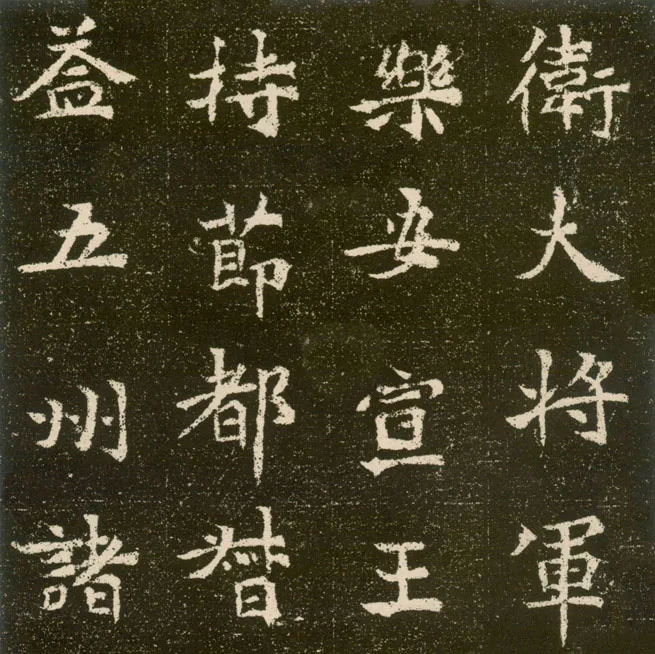 衛大将軍
樂安宣王
持莭都督
益五州諸